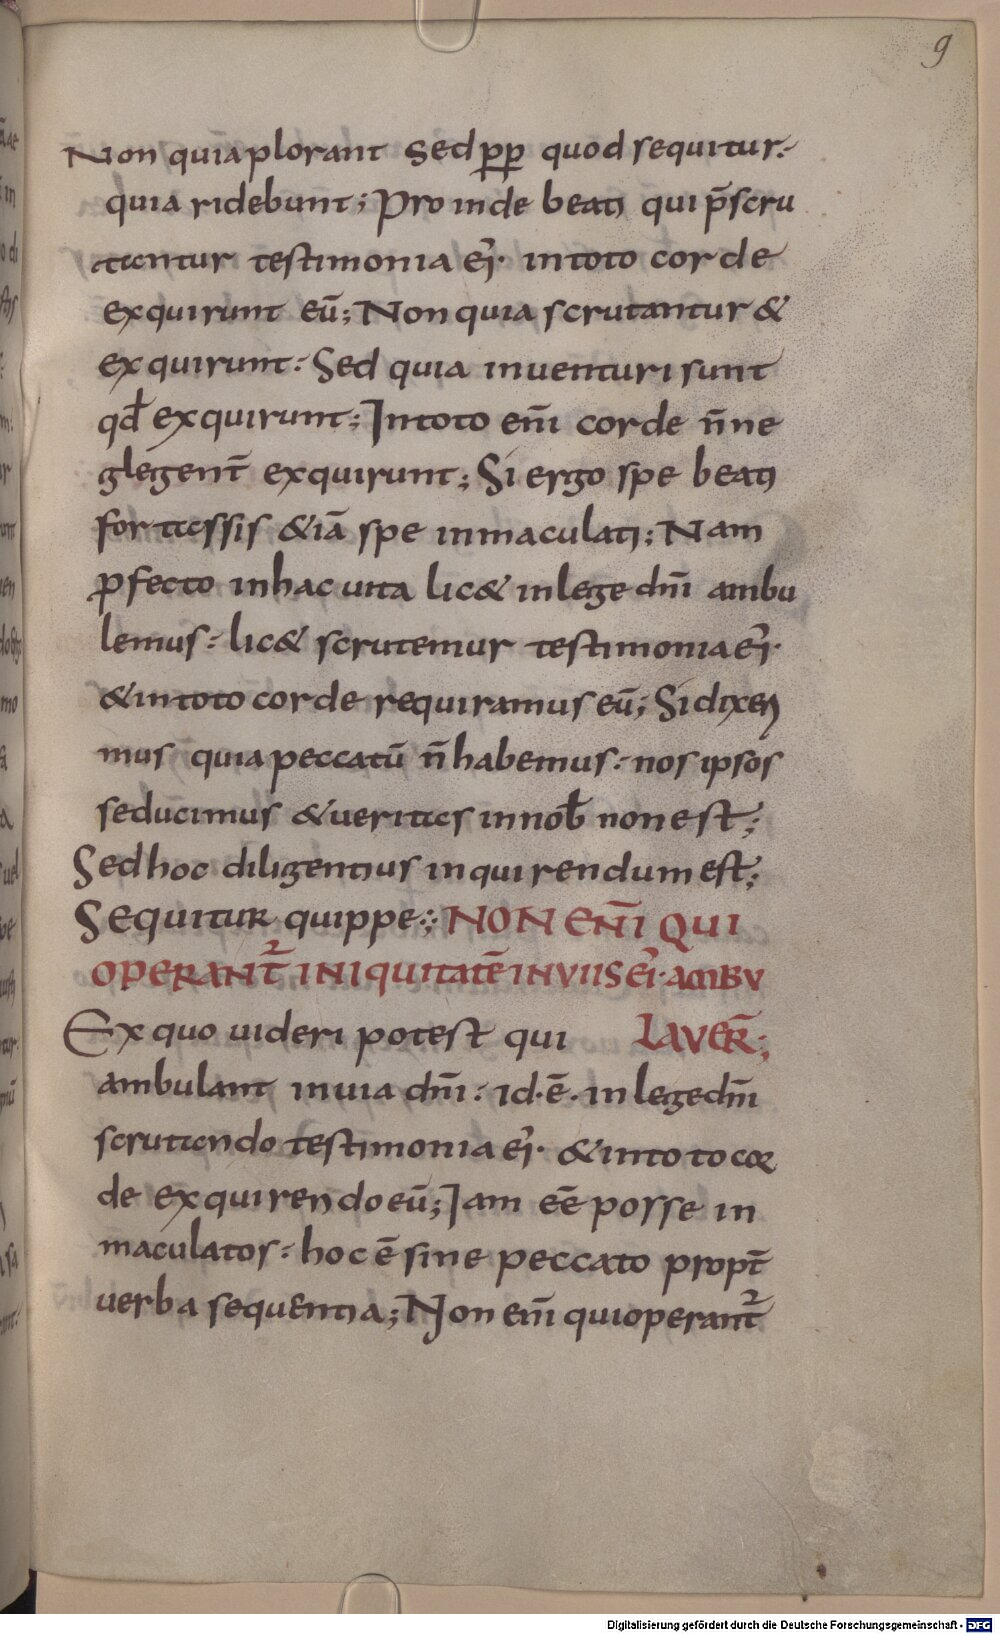 9
Non quia plorant sed pp̱ quod sequitur:
quia ridebunt; Proinde beati qui p̄scru
tantur testimonia eī· in toto corde
exquirunt eū; Non quia scrutantur &
exquirunt: Sed quia inventuri sunt
qđ exquirunt; In toto eni̅ corde n̄ ne
glegent̄ exquirunt; Si ergo spe beati
fortassis &iā spe inmaculati; Nam
ꝓfecto in hac uita lic& in lege dn̄i ambu
lemus: lic& scrutemur testimonia eī·
& in toto corde requiramus eū; Si dixeri
mus quia peccatū n̄ habemus: nos ipsos
seducimus & ueritas in nob̄ non est;
Sed hoc diligentius inquirendum est;
Sequitur quippe; NON ENI̅ QUI
OPERANT̄ INIQUITATĒ IN VIIS EĪ· AMBV
LAVER̄;
Ex quo uideri potest qui
ambulant in uia dn̄i: id·ē· in lege dn̄i
scrutando testimonia eī· & in toto cor
de exquirendo eū; Iam eē posse in
maculatos: hoc ē sine peccato propt̄
uerba sequentia; Non eni̅ qui operant̄
Digitalisierung gefördert durch die Deutsche Forschungsgemeinschaft - DFG